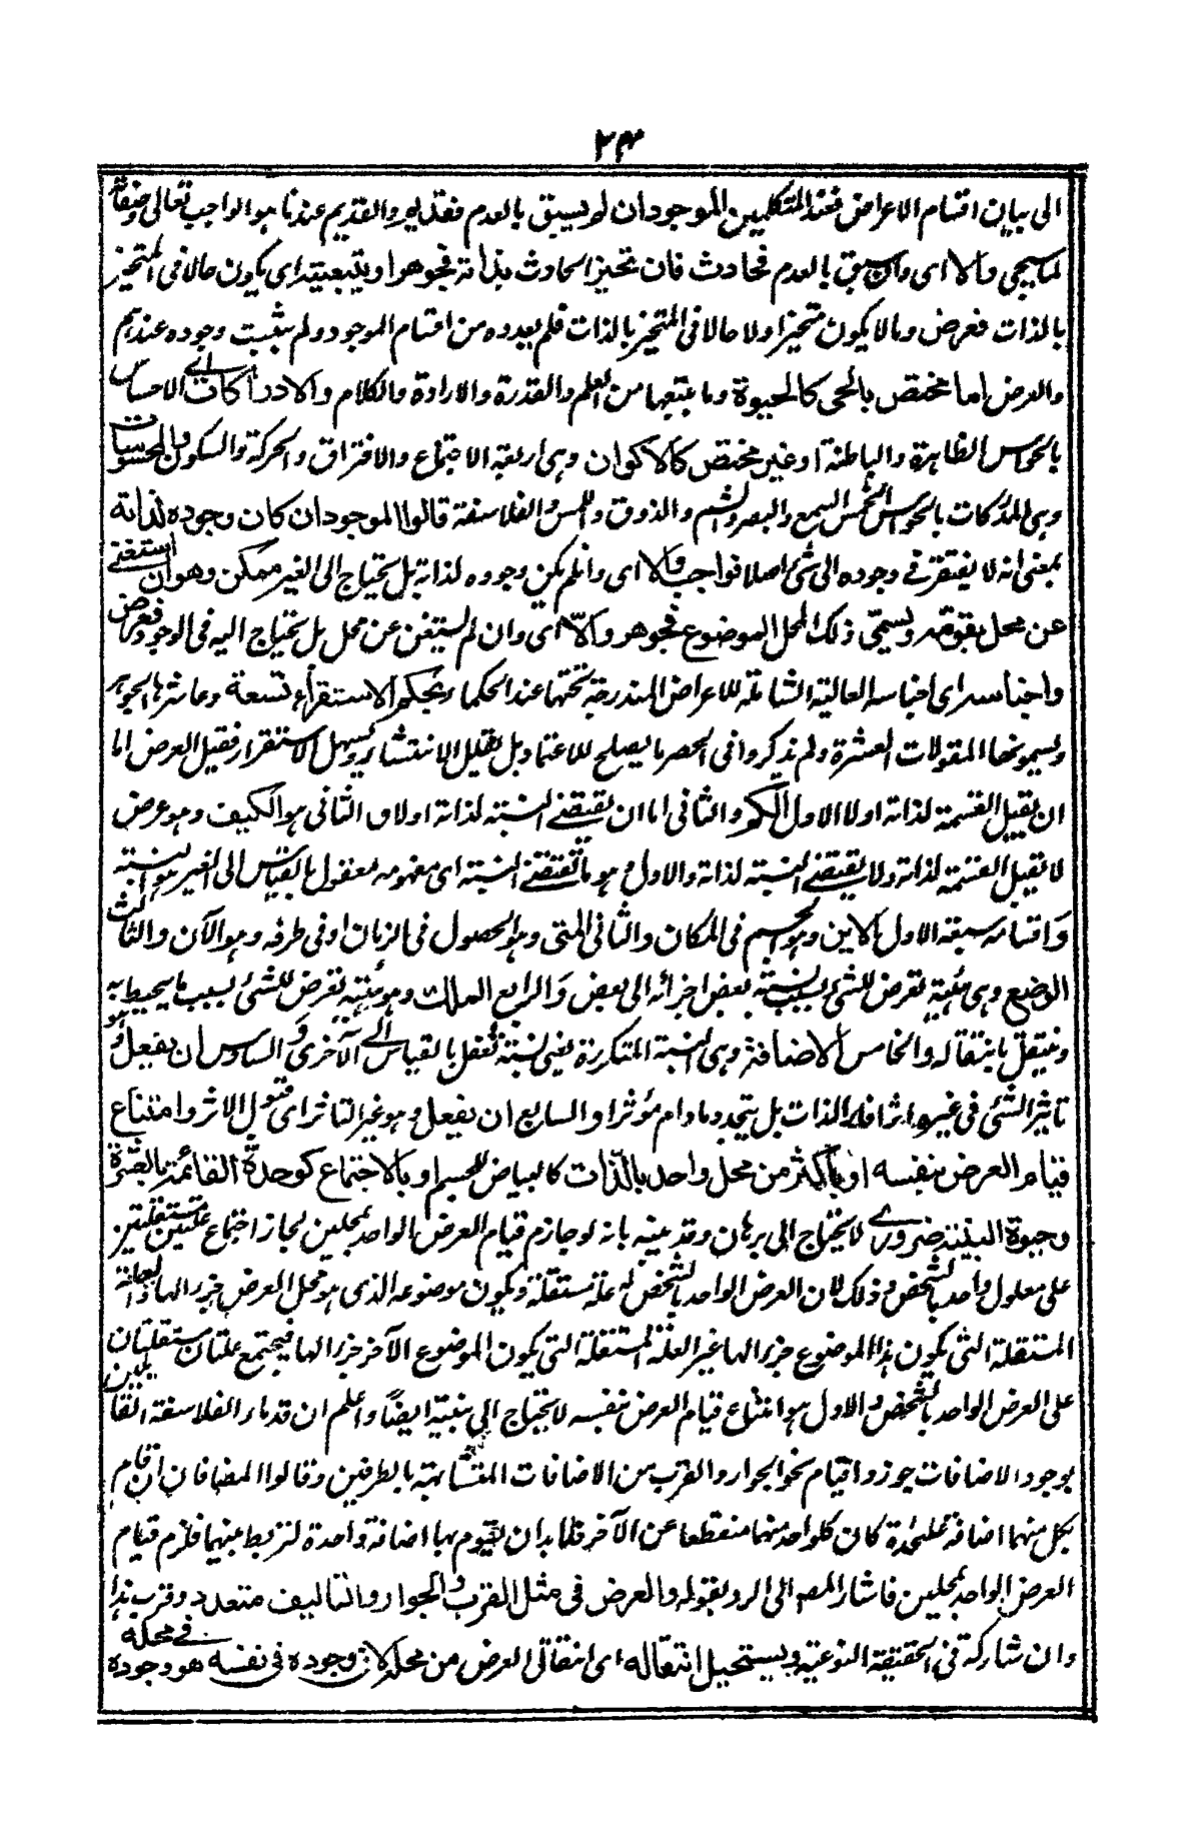 ٢٣
الى بيان اقسام الاعراض فعند المتكلمين الموجود ان لم يسبق بالعدم فقديم والقديم عندنا هو الواجب تعالى وصفاته
لما سيجى والا اى وان سبق بالعدم فحادث فان تحيز الحادث بذاته فجوهر او بتبعيته اى يكون حالا فى المتحيز
بالذات فعرض وما لا يكون متحيزا ولا حالا فى المتحيز بالذات فلم يعدوه من اقسام الموجود ولم يثبت وجوده عندهم
والعرض اما مختص بالحى كالحيوة وما يتبعها من العلم والقدرة والارادة والكلام والادراكات اى الاحساس
بالحواس الظاهرة والباطنة او غير مختص كالاكوان وهى اربعة الاجتماع والافتراق والحركة والسكون والمحسوسات
وهى المدركات بالحواس الخمس السمع والبصر والشم والذوق واللمس والفلاسفة قالوا الموجود ان كان وجوده لذاته
بمعنى انه لا يفتقر فى وجوده الى شئ اصلا فواجب والا اى وان لم يكن وجوده لذاته بل يحتاج الى الغير ممكن وهو ان استغنى
عن محل يقومه ويسمى ذلك المحل الموضوع فجوهر والا اى وان لم يستغن عن محل بل يحتاج اليه فى الوجود فعرض
واجناسه اى اجناسه العالية الشاملة للاعراض المندرجة تحتها عند الحكماء بحكم الاستقراء تسعة وعاشرها الجوهر
ويسمونها المقولات العشرة ولم يذكروا فى الحصر ما يصلح للاعتماد بل لتقليل الانتشار ويسهل الاستقرار فقيل العرض اما
ان يقبل القسمة لذاته او لا الاول الكم والثانى اما ان يقتضى النسبة لذاته او لا والثانى هو الكيف وهو عرض
لا يقبل القسمة لذاته ولا يقتضى النسبة لذاته والاول وهو ما يقتضى النسبة اى مفهومه معقول بالقياس الى الغير هو النسبة
واقسامه سبعة الاول الاين وهو الجسم فى المكان والثانى المتى وهو الحصول فى الزمان او فى طرفه وهو الآن والثالث
الوضع وهى هيئة تعرض للشئ بسبب نسبة بعض اجزائه الى بعض والرابع الملك وهو هيئة تعرض للشئ بسبب ما يحيط به
وينتقل بانتقاله والخامس الاضافة وهى النسبة المتكررة يعنى نسبة تعقل بالقياس الى الاخرى والسادس ان يفعل وهو
تاثير الشئ فى غيره اثرا غير قار الذات بل يتجدد ما دام مؤثرا والسابع ان ينفعل وهو غير التاثر اى قبول الاثر وامتناع
قيام العرض بنفسه او باكثر من محل واحد بالذات كالبياض للجسم او بالاجتماع كوحدة القائمة بالعشرة
وحيوة البنية ضرورى لا يحتاج الى برهان وقد ينبه بانه لو جاز قيام العرض الواحد بمحلين لجاز اجتماع علتين مستقلتين
على معلول واحد بالشخص وذلك لان العرض الواحد بالشخص له علة مستقلة ويكون موضوعه الذى هو محل العرض جزءا لها
المستقلة التى يكون هذا الموضوع جزءا لها غير العلة المستقلة التى يكون الموضوع الآخر جزءا لها فيجتمع علتان مستقلتان
على العرض الواحد بالشخص والاول هو امتناع قيام العرض بنفسه لا يحتاج الى تنبيه ايضا واعلم ان قدماء الفلاسفة القائلين
بوجود الاضافات جوزوا قيام نحو الجوار والقرب من الاضافات المتشابهة بالطرفين وقالوا المضافان ان قام
بكل منهما اضافة عليحدة كان كل واحد منهما منقطعا عن الآخر فلا بد ان يقوم بهما اضافة واحدة لتربط بينهما فلزم قيام
العرض الواحد بمحلين فاشار المص الى الرد بقوله والعرض فى مثل القرب والجوار والتاليف متعدد وقرب هذا
وان شاركه فى الحقيقة النوعية ويستحيل انتقاله اى انتقال العرض من محله لان وجوده فى نفسه هو وجوده فى محله